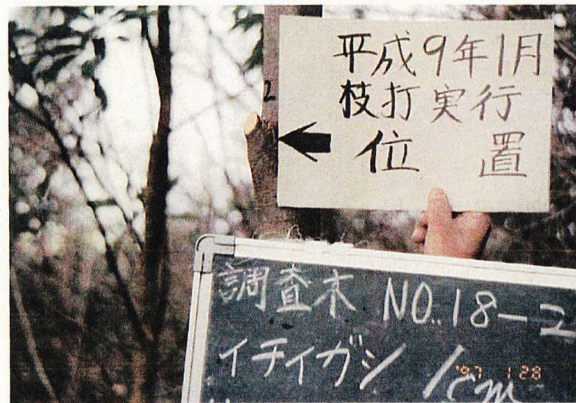 平成9年1月
枝打実行
位置
2
調査木 NO.18-2
イチイガシ 1cm
'97 1 28